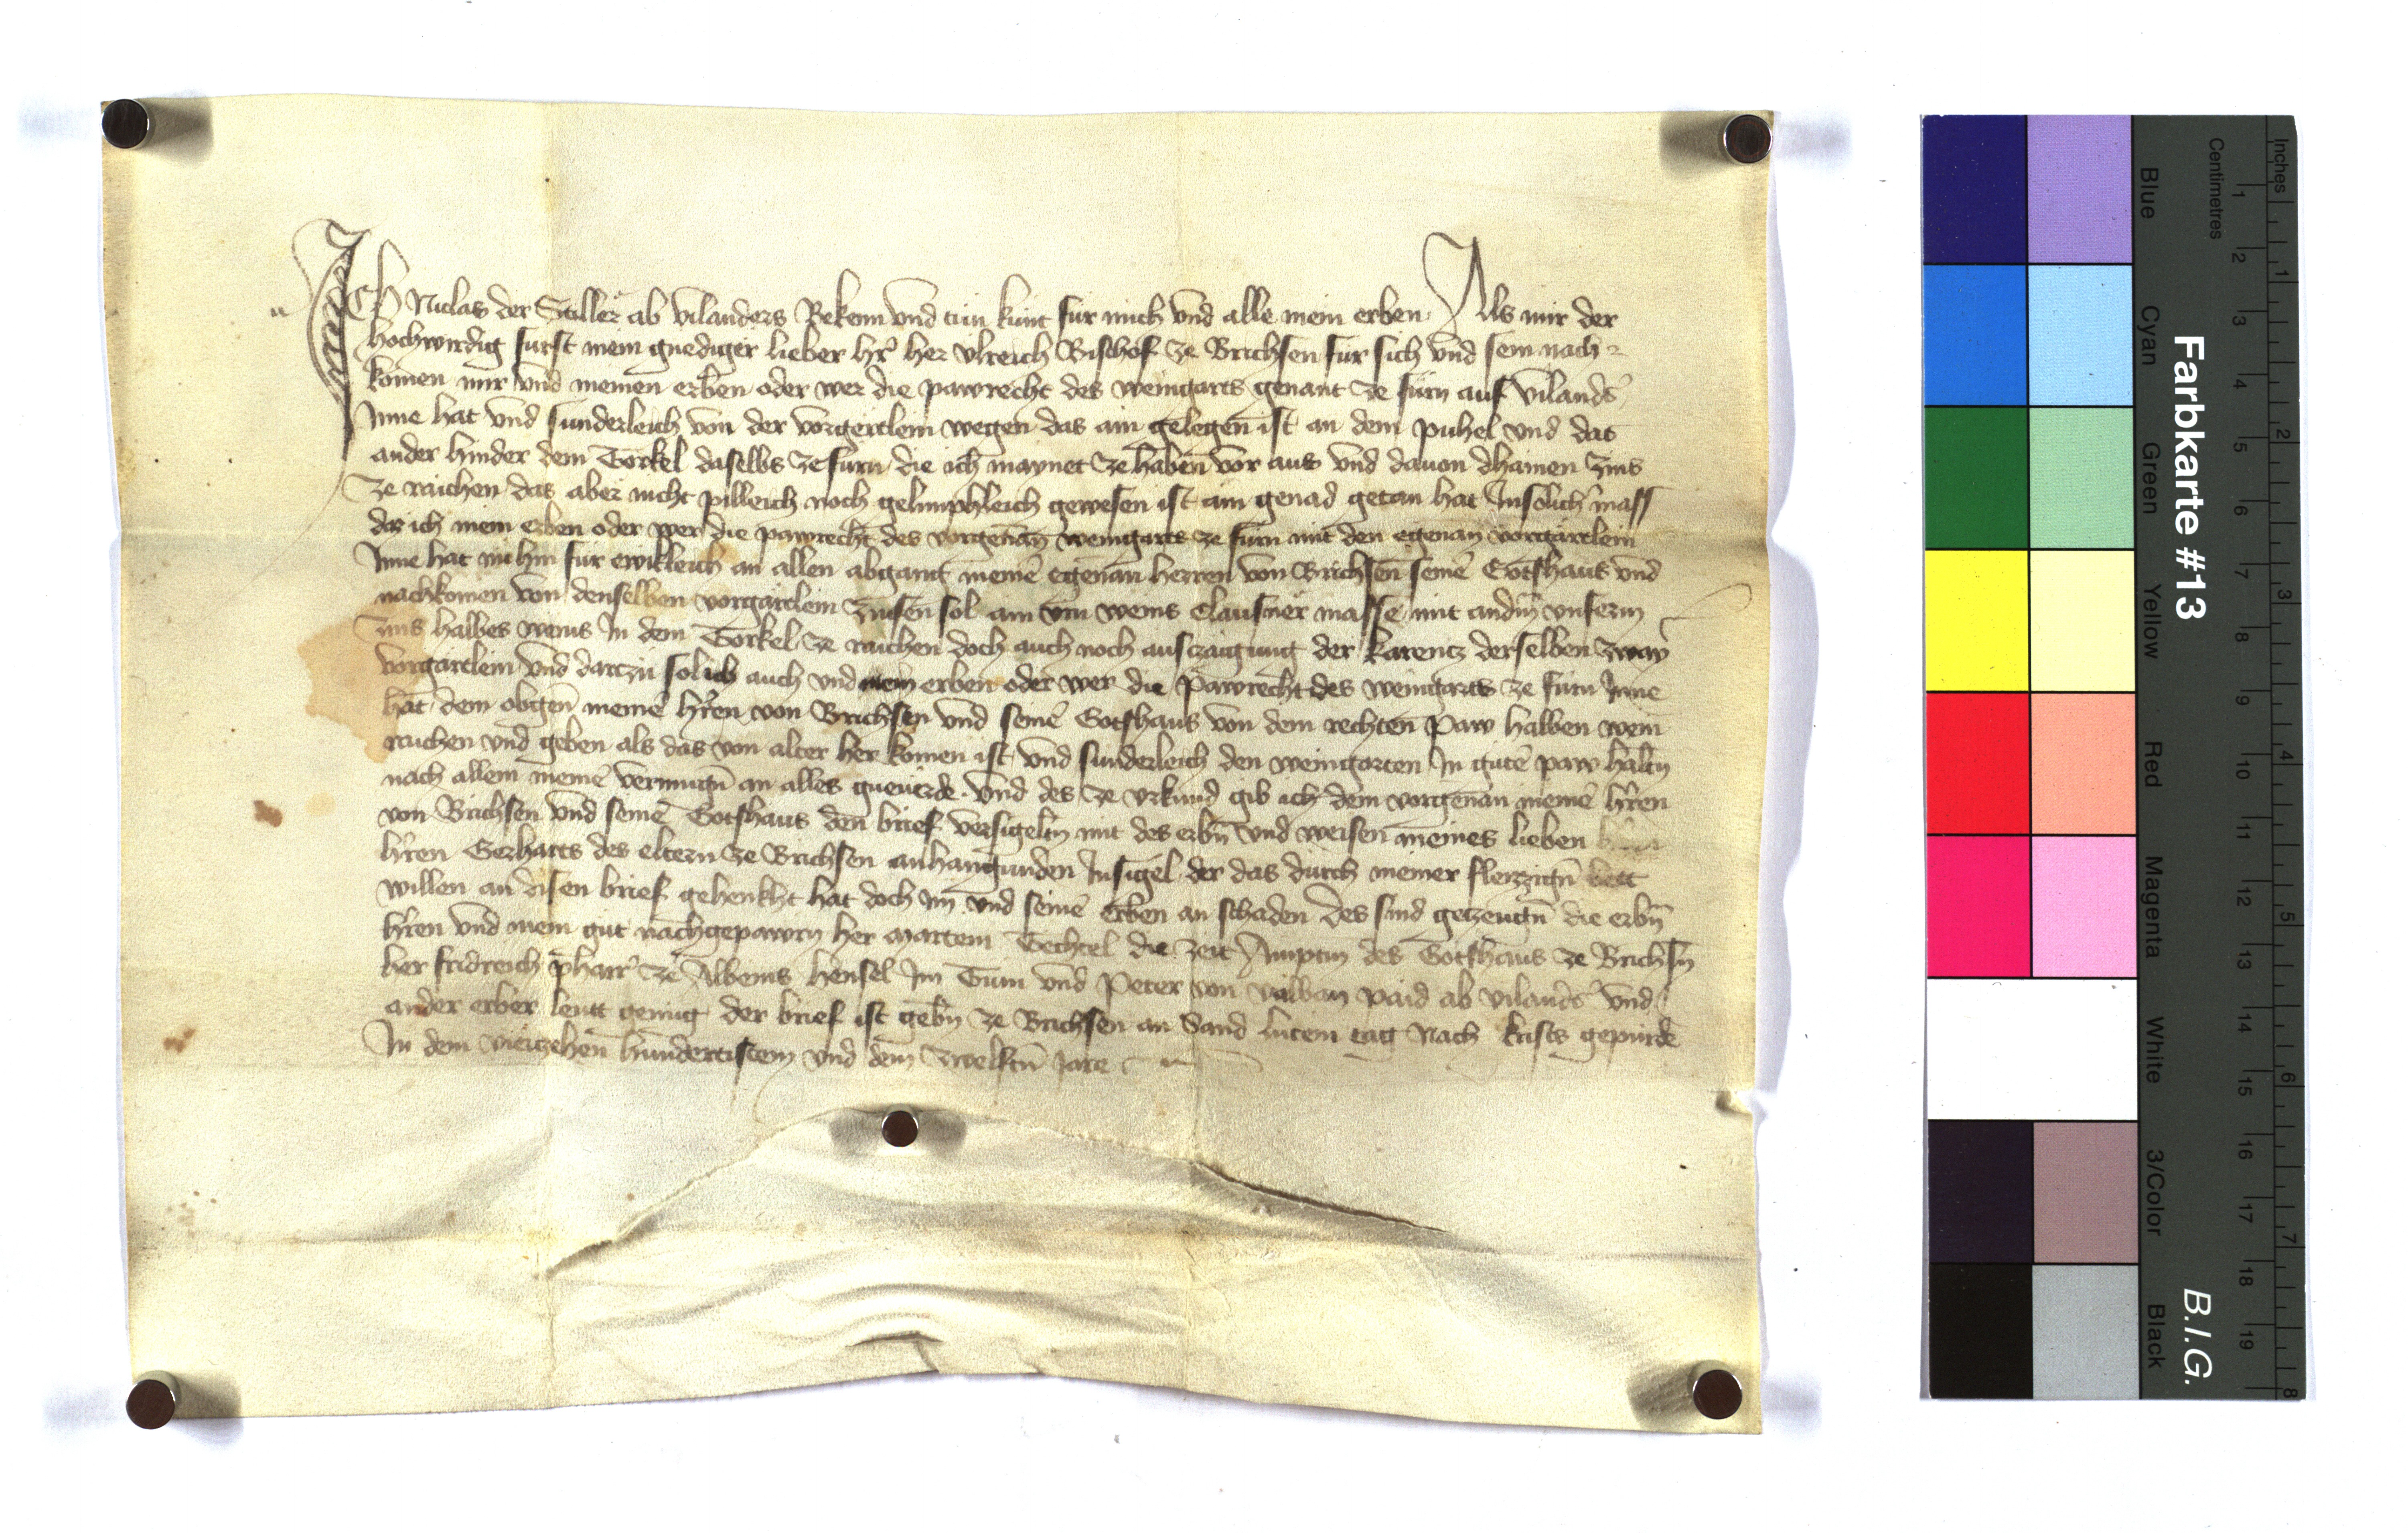 Ich Niclas der Stiller ab vilanders Bekenn vnd tun kunt fur mich vnd alle mein erben Als mir der
hochwirdig furst mein gnediger lieber hr̄ her vlreich Bischof ze Brichsen fur sich vnd sein nach-
komen mir vnd meinen erben oder wer die pawrecht des weingarts genant ze furn auf viland̄s
Inne hat vnd sunderleich von der vorgertlein wegen das ain gelegen ist an dem puhel vnd das
ander hinder dem Torkel daselbs ze furn die ich maynet ze haben vor aus vnd dauon chainen zins
ze raichen das aber nicht pilleich noch gelimphleich gewesen ist ain genad getan hat Insolich̄ mass
das ich mein erben oder wer die pawrecht des vorgenan̄ weingarts ze furn mit den egenan̄ vorgärtlein
Inne hat nu hin fur ewikleich an allen abgang meinē egenan̄ herren von Brichsen seinē Gotshaus vnd
nachkomen von denselben vorgärtlein zinsen sol ain vrn weins Clausner masse mit andm̄ vnserm
zins halbes weins In dem Torkel ze raichen doch auch noch auszaigung der karentz derselben zway
vorgärtlein vnd dartzu sol ich auch vnd mein erben oder wer die pawrecht des weingarts ze furn Inne
hat dem obgen̄ meinē hr̄en von Brichsen vnd seinē Gotshaus von dem rechten paw halben wein
raichen vnd geben als das von alter her komen ist vnd sunderleich den weingarten In gutē paw haltn̄
nach allem meinē vermugn̄ an alles gneuerde vnd des ze vrkund gib ich dem vorgenan̄ meinē hr̄en
von Brichsen vnd seinē Gotshaus den brief versigeltn̄ mit des erbn̄ vnd weisen meines lieben
hr̄en Gerharts des eltern ze Brichsen anhangunden Insigel der das durch meiner fleizzign̄ bett
willen an disen brief gehenkht hat doch im vnd seinē erben an schaden Des sind getzeugn̄ die erbn̄
hr̄en vnd mein gut nachgepawrn her Martein Techtel die zeit Amptm̄ des Gotshaus ze Brichsn̄
her fridreich pharr̄ ze Albeins Hensel Im Turn vnd Peter von valban paid ab viland̄s vnd
ander erber leutt genug der brief ist gebn̄ ze Brichsen an Sand lucein tag Nach krists gepurde
In dem viertzehen hundertistem vnd dem zwelftn̄ Jare
Farbkarte #13
B.I.G.
Blue
Cyan
Green
Yellow
Red
Magenta
White
3/Color
Black
Centimetres
1 2 3 4 5 6 7 8 9 10 11 12 13 14 15 16 17 18 19
Inches
1 2 3 4 5 6 7 8